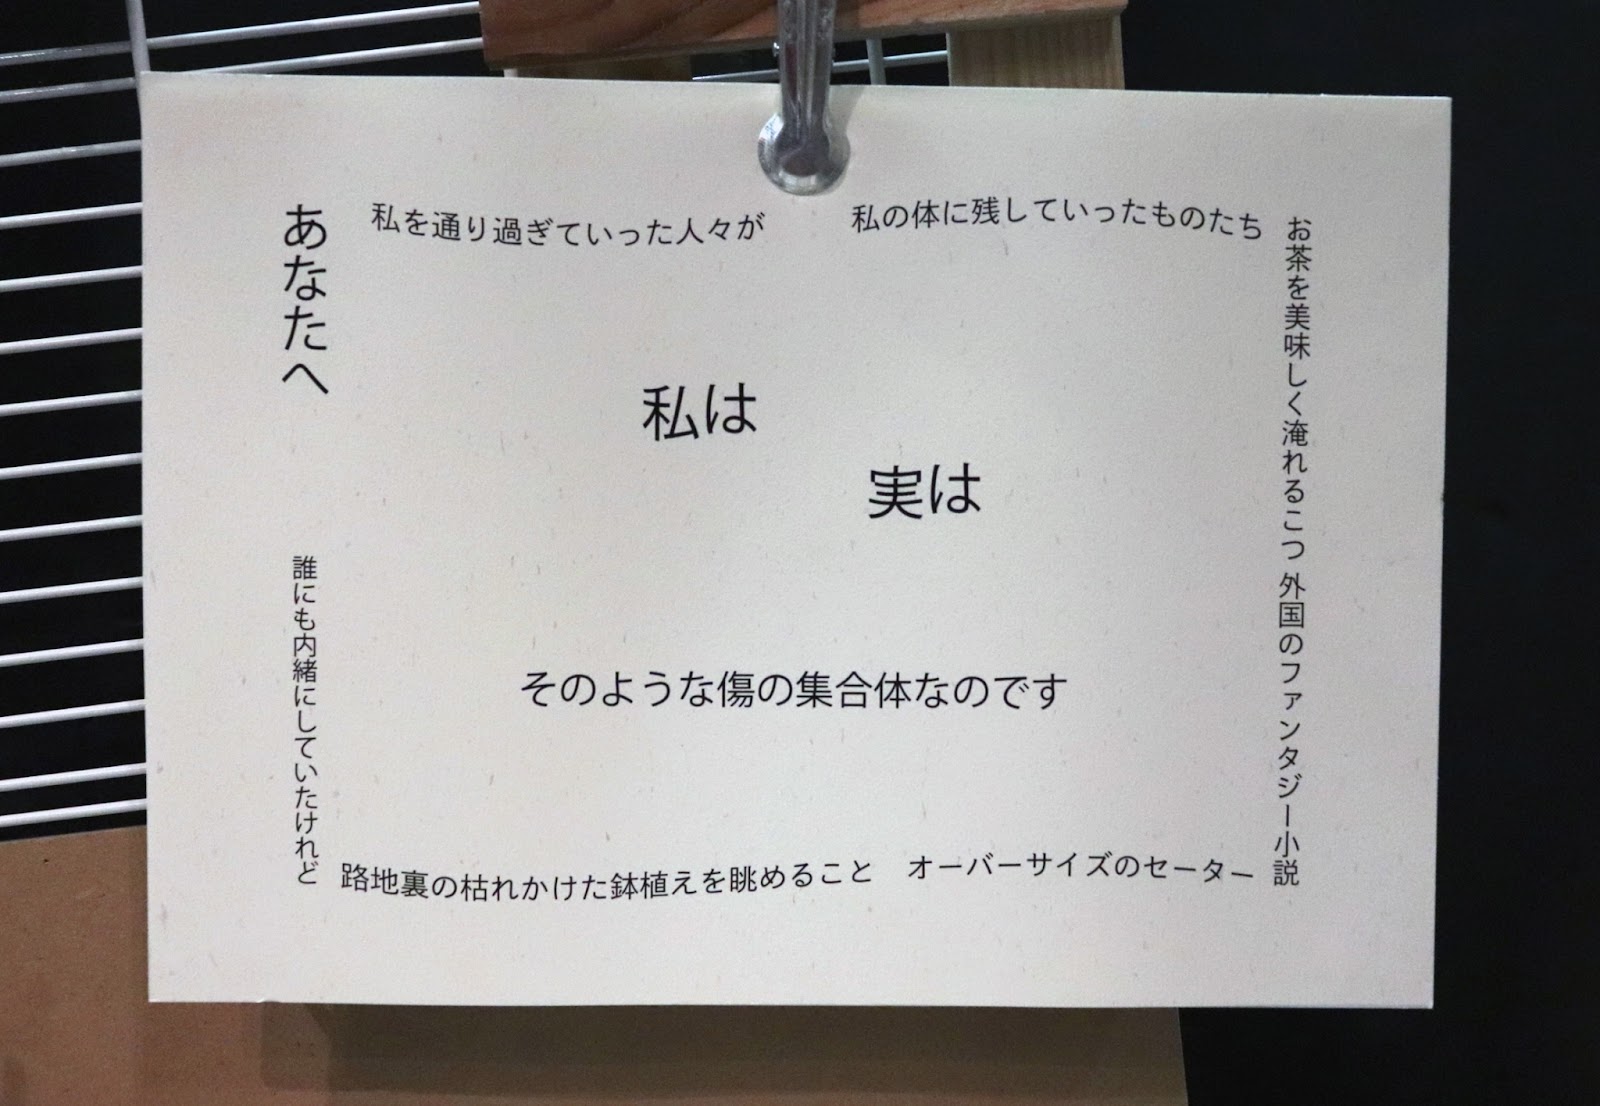 あなたへ
私を通り過ぎていった人々が
私の体に残していったものたち
お茶を美味しく淹れるこつ 外国のファンタジー小説
オーバーサイズのセーター
路地裏の枯れかけた鉢植えを眺めること
誰にも内緒にしていたけれど
私は
実は
そのような傷の集合体なのです